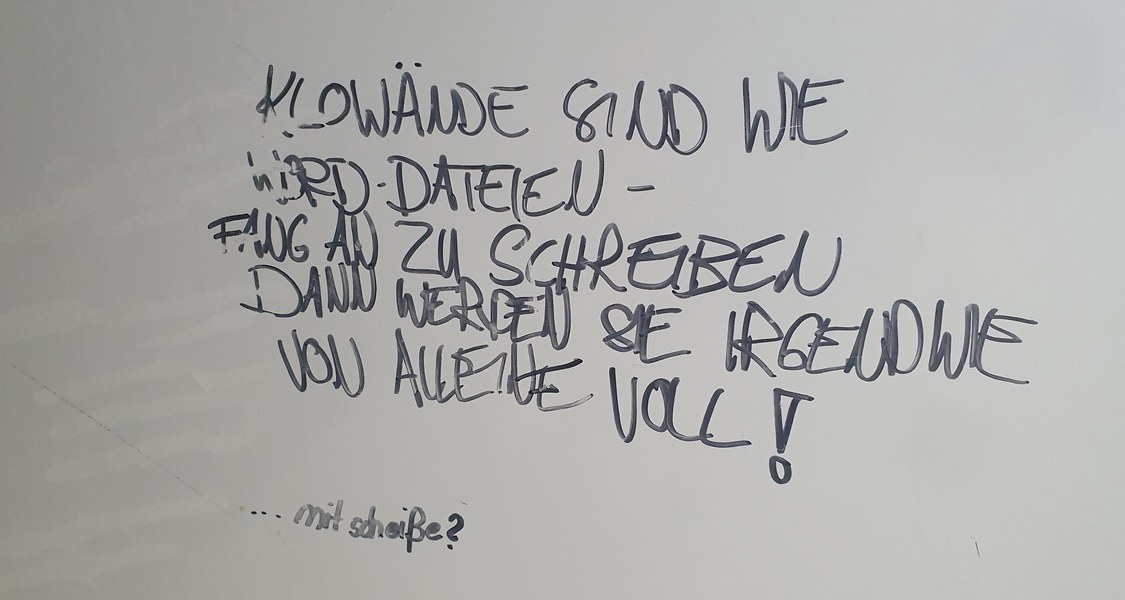 KLOWÄNDE SIND WIE
WORD-DATEIEN -
FANG AN ZU SCHREIBEN
DANN WERDEN SIE IRGENDWIE
VON ALLEINE VOLL!
... mit scheiße?